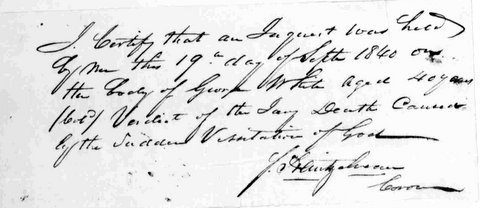 I Certify that an Inquest was held
by Me this 19th day of Septr 1840 on
the body of George White aged 40 years
Verdict of the Jury Death Caused
by the Sudden Visitation of God
J.
Coroner